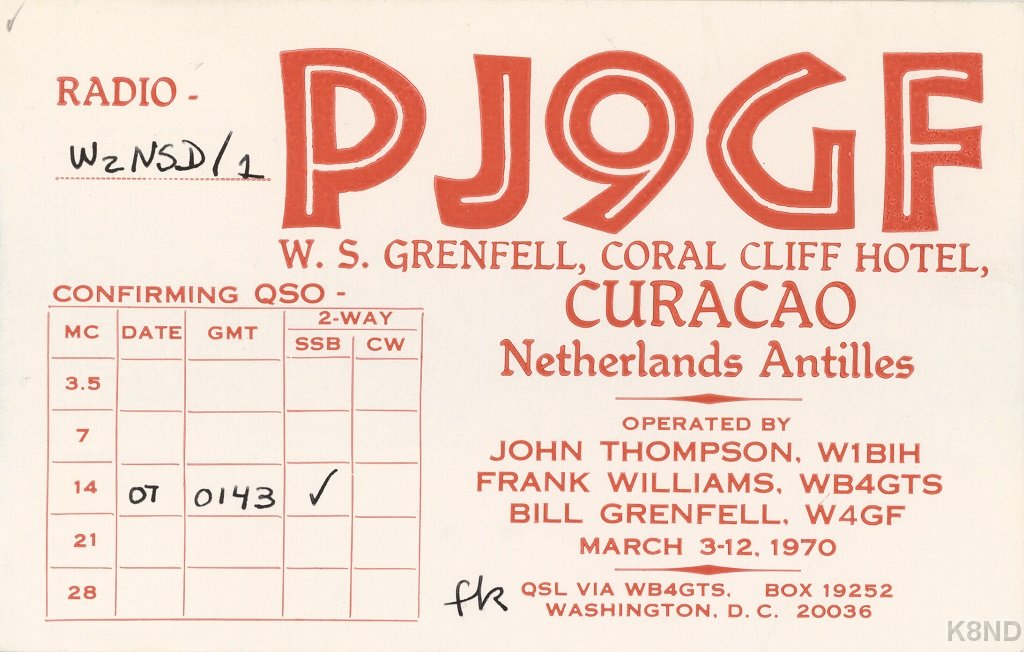 RADIO -
W2NSD/1
PJ9GF
W. S. GRENFELL, CORAL CLIFF HOTEL,
CURACAO
Netherlands Antilles
CONFIRMING QSO -
MC DATE GMT 2-WAY
SSB CW
3.5
7
14 07 0143 ✓
21
28
OPERATED BY
JOHN THOMPSON, W1BIH
FRANK WILLIAMS, WB4GTS
BILL GRENFELL, W4GF
MARCH 3-12, 1970
QSL VIA WB4GTS, BOX 19252
WASHINGTON, D. C. 20036
K8ND